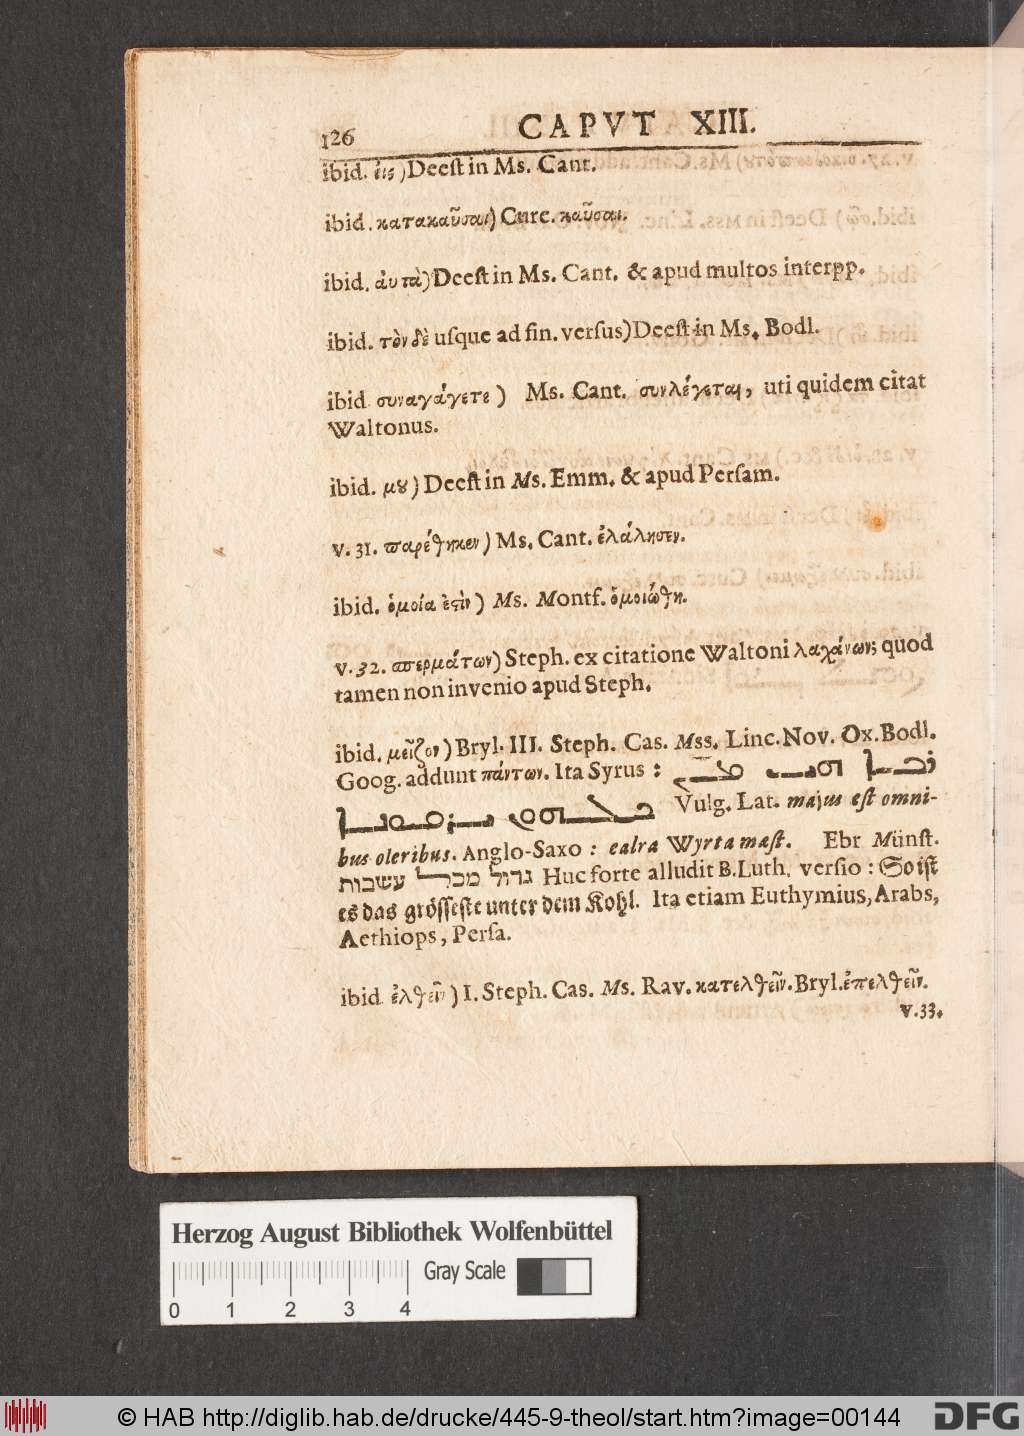 126 CAPVT XIII.
ibid. ἐις) Deeſt in Ms. Cant.
ibid. κατακαῦσαι) Curc. καῦσαι.
ibid. ἀυτὰ) Deeſt in Ms. Cant. & apud multos interpp.
ibid. τὸν δὲ uſque ad fin. verſus) Deeſt in Ms. Bodl.
ibid συναγάγετε) Ms. Cant. συνλέγεται, uti quidem citat
Waltonus.
ibid. μȣ) Deeſt in Ms. Emm. & apud Perſam.
v. 31. παρέθηκεν) Ms. Cant. ἐλάλησεν.
ibid. ὁμοία ἐϛὶν) Ms. Montf. ὁμοιώθη.
v. 32. σπερμάτων) Steph. ex citatione Waltoni λαχάνων; quod
tamen non invenio apud Steph.
ibid. μεῖζον) Bryl. III. Steph. Cas. Mss. Linc. Nov. Ox. Bodl.
Goog. addunt πάντων. Ita Syrus :
Vulg. Lat. majus eſt omni-
bus oleribus. Anglo-Saxo : ealra Wyrta mæſt. Ebr Münſt.
גדול מכרל עשבות Huc forte alludit B. Luth. verſio : So iſt
es das gröſſeſte unter dem Kohl. Ita etiam Euthymius, Arabs,
Aethiops, Perſa.
ibid ἐλθεῖν) I. Steph. Cas. Ms. Rav. κατελθεῖν. Bryl. ἐπελθεῖν.
v. 33.
Herzog August Bibliothek Wolfenbüttel
Gray Scale
0 1 2 3 4
© HAB http://diglib.hab.de/drucke/445-9-theol/start.htm?image=00144
DFG